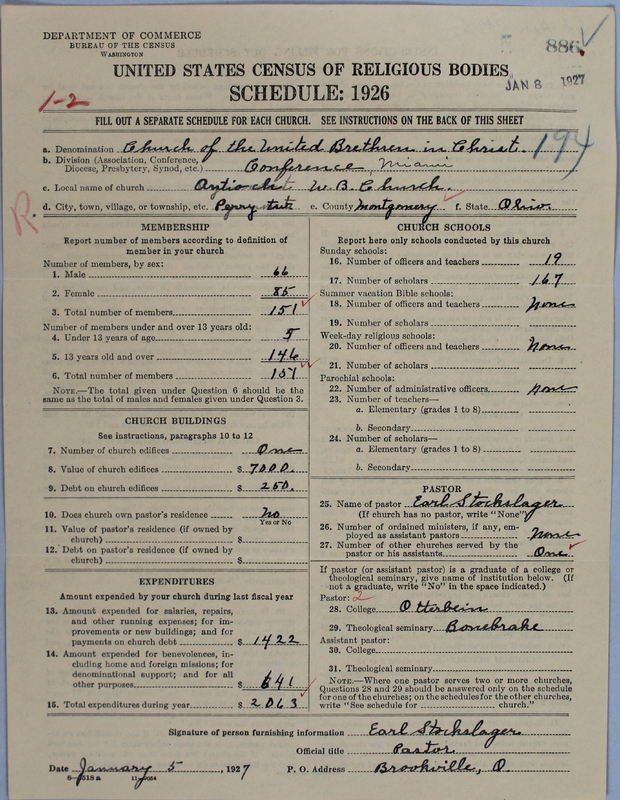 DEPARTMENT OF COMMERCE
BUREAU OF THE CENSUS
WASHINGTON
886
UNITED STATES CENSUS OF RELIGIOUS BODIES
JAN 8 1927
SCHEDULE: 1926
1-2
FILL OUT A SEPARATE SCHEDULE FOR EACH CHURCH. SEE INSTRUCTIONS ON THE BACK OF THIS SHEET
194
a. Denomination Church of the United Brethren in Christ.
b. Division (Association, Conference, Diocese, Presbytery, Synod, etc.) Conference, Miami
c. Local name of church Antioch U. B. Church.
d. City, town, village, or township, etc. Perry e. County Montgomery f. State Ohio.
R.
MEMBERSHIP
Report number of members according to definition of
member in your church
Number of members, by sex:
1. Male 66
2. Female 85
3. Total number of members 151
Number of members under and over 13 years old:
4. Under 13 years of age 5
5. 13 years old and over 146
6. Total number of members 151
NOTE.—The total given under Question 6 should be the
same as the total of males and females given under Question 3.
CHURCH BUILDINGS
See instructions, paragraphs 10 to 12
7. Number of church edifices One
8. Value of church edifices $ 7000.
9. Debt on church edifices $ 250.
10. Does church own pastor's residence No
Yes or No
11. Value of pastor's residence (if owned by
church) $
12. Debt on pastor's residence (if owned by
church) $
EXPENDITURES
Amount expended by your church during last fiscal year
13. Amount expended for salaries, repairs,
and other running expenses; for im-
provements or new buildings; and for
payments on church debt $ 1422
14. Amount expended for benevolences, in-
cluding home and foreign missions; for
denominational support; and for all
other purposes $ 641
15. Total expenditures during year $ 2063
CHURCH SCHOOLS
Report here only schools conducted by this church
Sunday schools:
16. Number of officers and teachers 19
17. Number of scholars 167
Summer vacation Bible schools:
18. Number of officers and teachers None
19. Number of scholars
Week-day religious schools:
20. Number of officers and teachers None
21. Number of scholars
Parochial schools:
22. Number of administrative officers None
23. Number of teachers—
a. Elementary (grades 1 to 8)
b. Secondary
24. Number of scholars—
a. Elementary (grades 1 to 8)
b. Secondary
PASTOR
25. Name of pastor Earl Stockslager
(If church has no pastor, write "None")
26. Number of ordained ministers, if any, em-
ployed as assistant pastors None
27. Number of other churches served by the
pastor or his assistants One
If pastor (or assistant pastor) is a graduate of a college or
theological seminary, give name of institution below. (If
not a graduate, write "No" in the space indicated.)
Pastor: 2
28. College Otterbein
29. Theological seminary Bonebrake
Assistant pastor:
30. College
31. Theological seminary
NOTE.—Where one pastor serves two or more churches,
Questions 28 and 29 should be answered only on the schedule
for one of the churches; on the schedules for the other churches,
write "See schedule for church."
Signature of person furnishing information Earl Stockslager
Official title Pastor
Date January 5, 1927 P. O. Address Brookville, O.